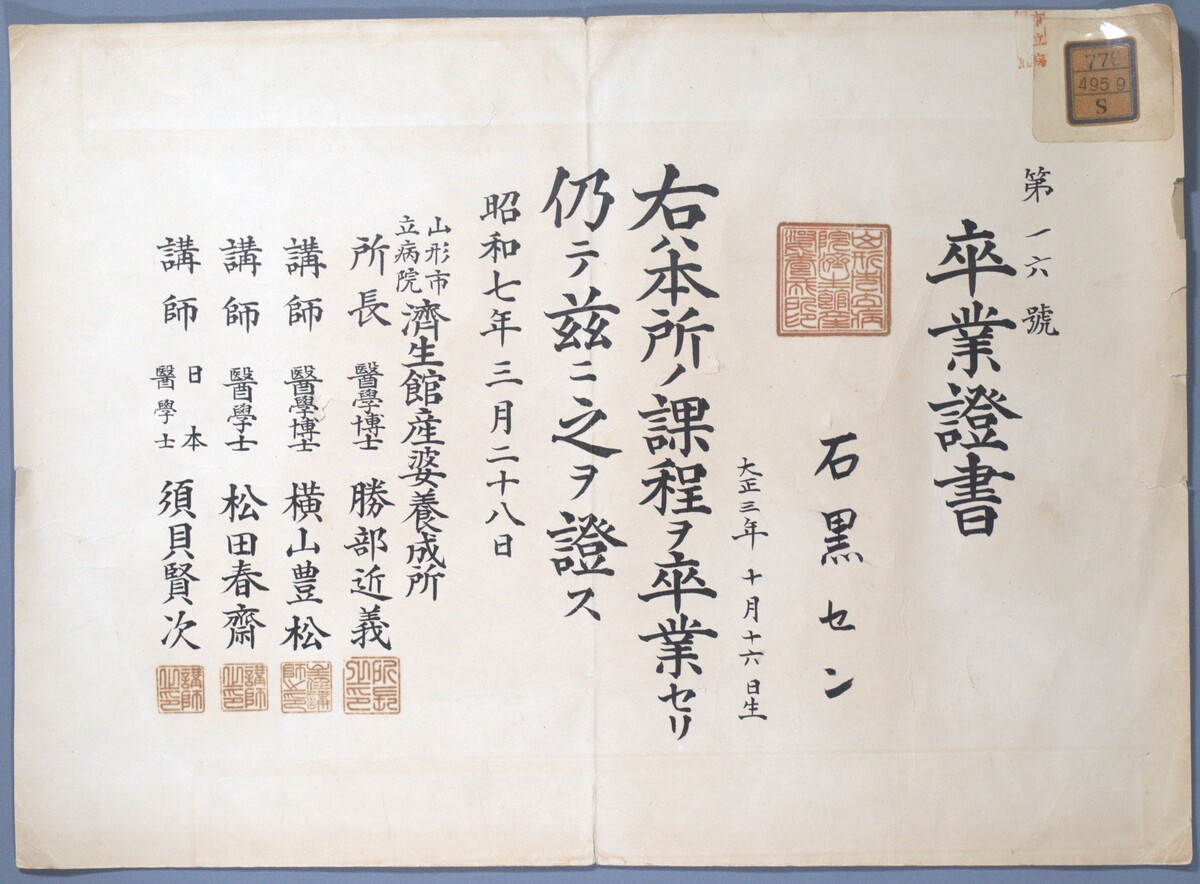 495.9
S
第一六號
卒業證書
石黒セン
大正三年十月十六日生
右ハ本所ノ課程ヲ卒業セリ
仍テ茲ニ之ヲ證ス
昭和七年三月二十八日
山形市立病院濟生館産婆養成所
所長 醫學博士 勝部近義
講師 醫學博士 横山豊松
講師 醫學士 松田春齋
講師 日本醫學士 須貝賢次